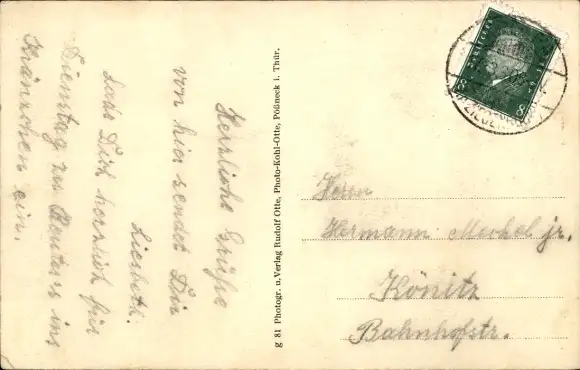 Herzliche Grüße
von hier sendet Dir
Liesbeth.
Lade Dich herzlich für
Dienstag zu Reuters ins
Kränzchen ein.
g 81 Photogr. u. Verlag Rudolf Otte, Photo-Kohl-Otte, Pößneck i. Thür.
8 8
Herrn
Hermann Mechel jr.
Könitz
Bahnhofstr.